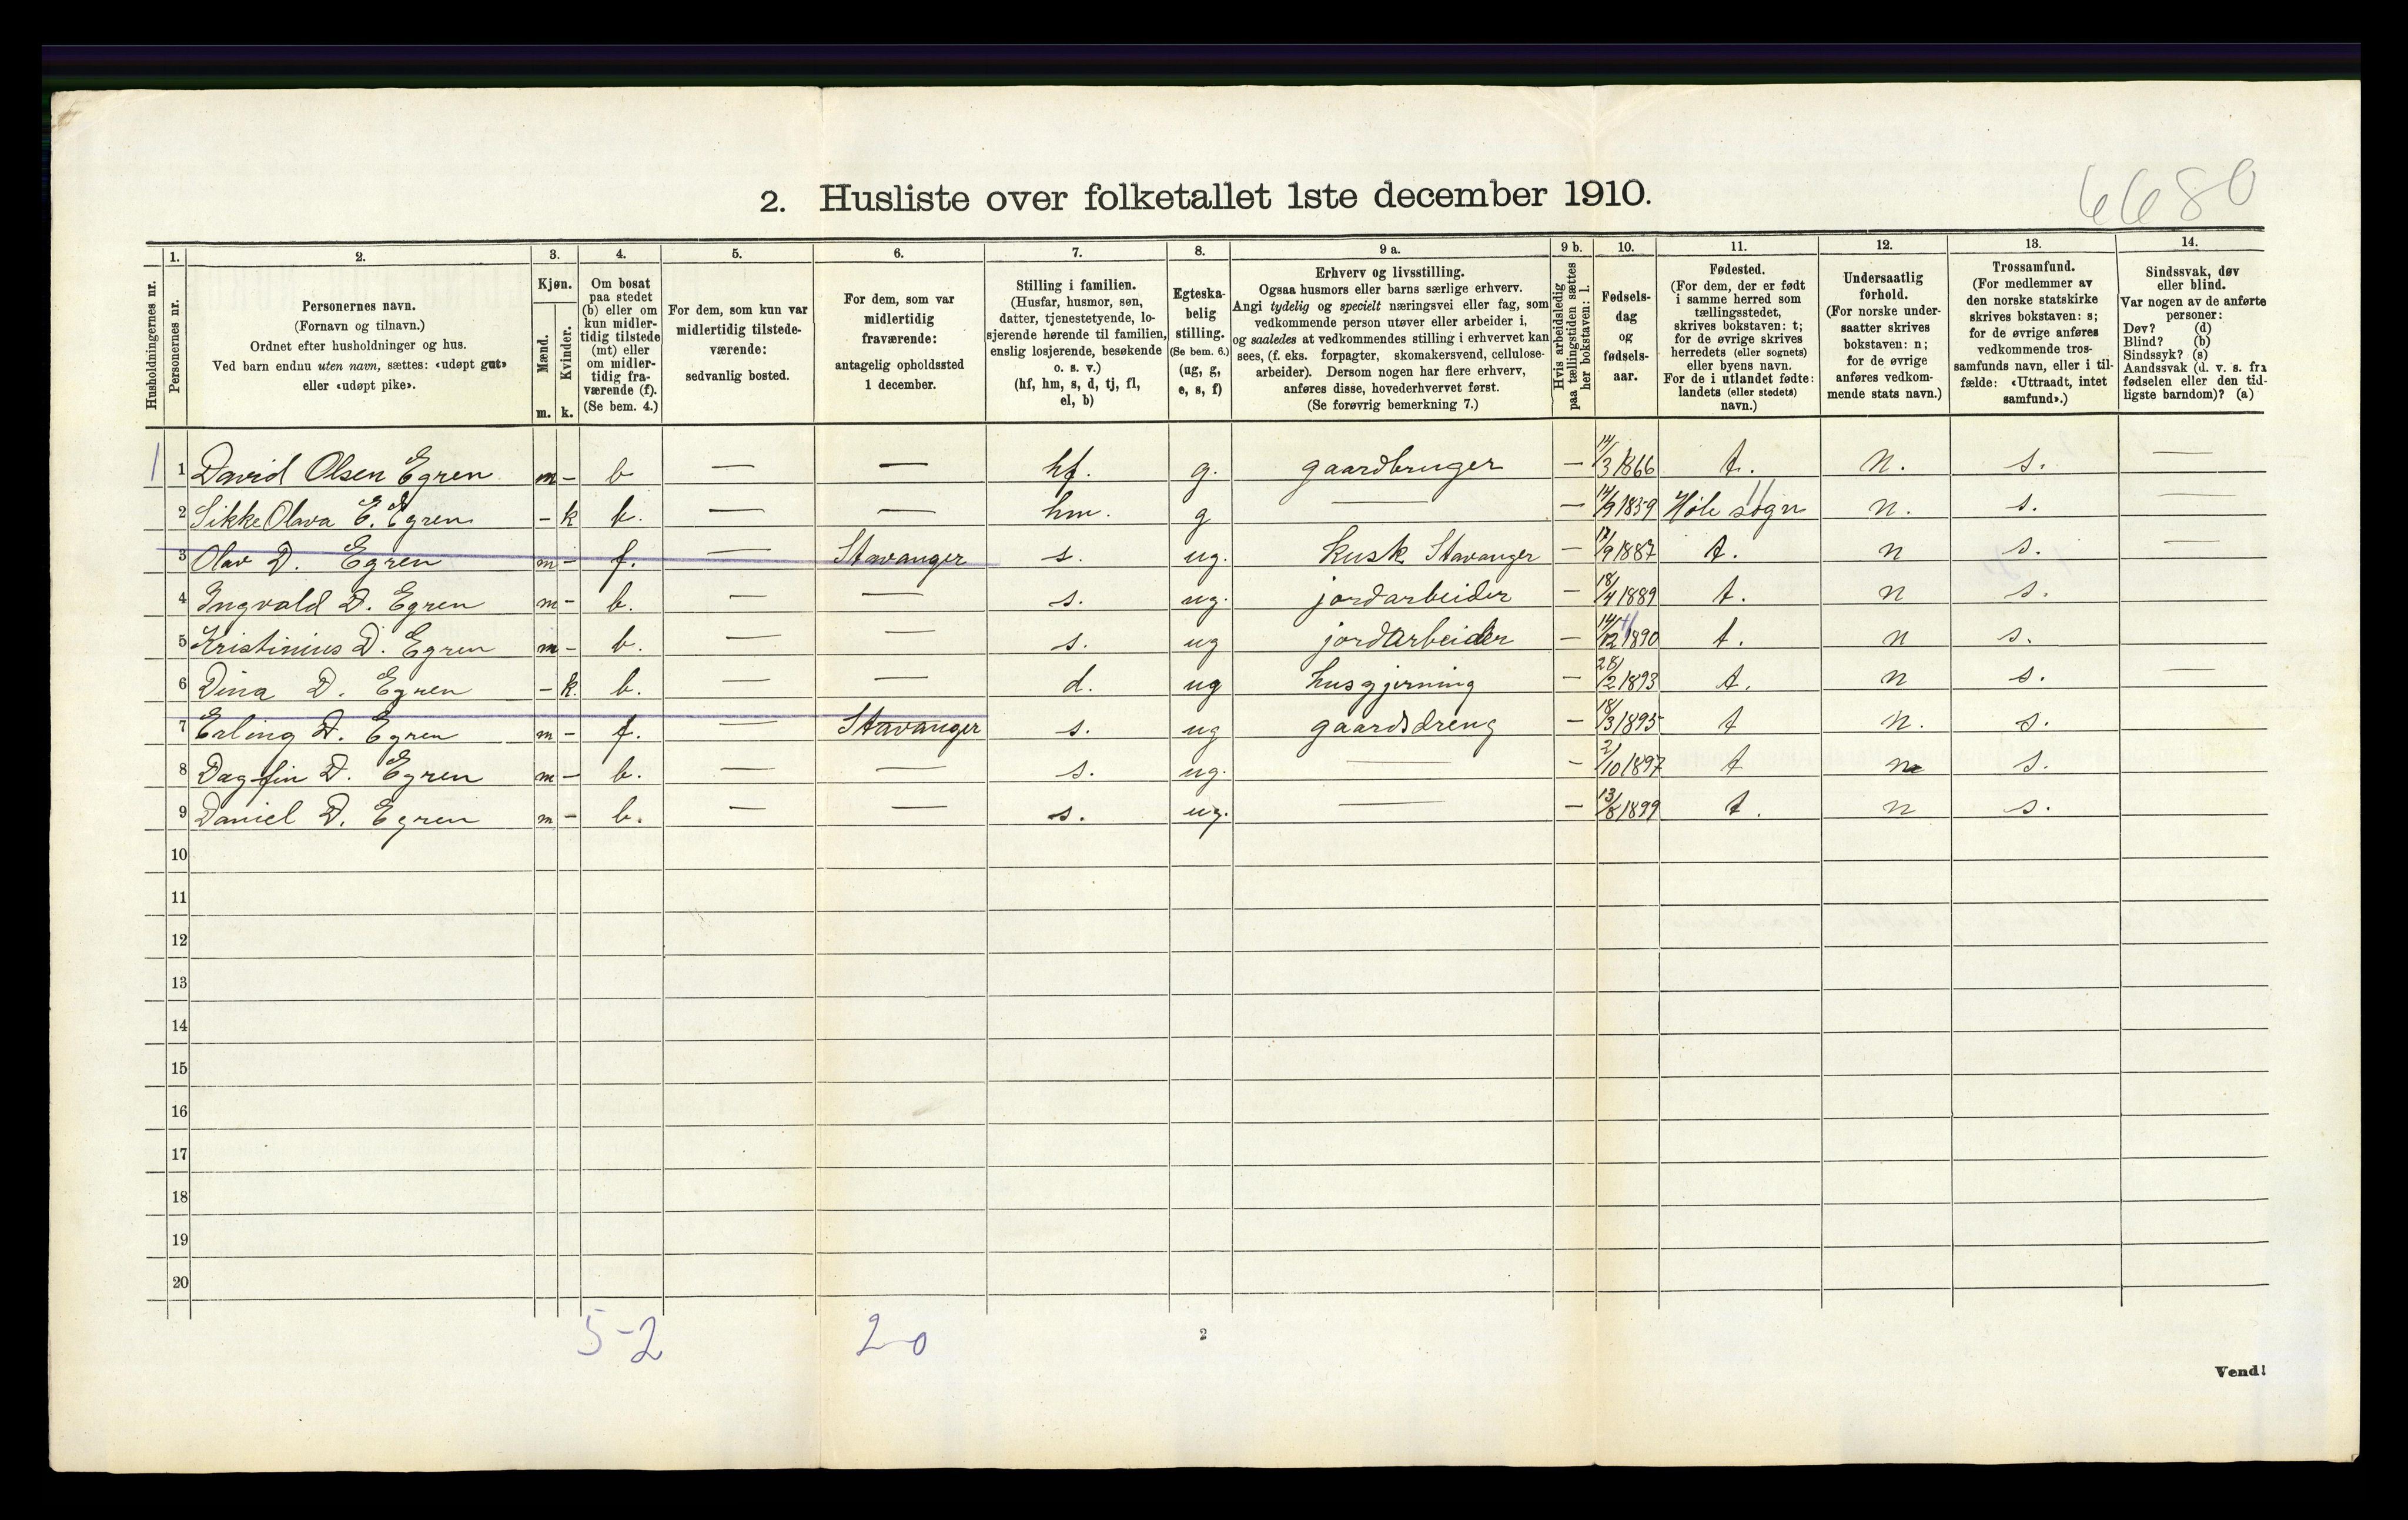 6680
2. Husliste over folketallet 1ste december 1910.
Husholdningernes nr.
1.
Personernes nr.
2.
Personernes navn.
(Fornavn og tilnavn.)
Ordnet efter husholdninger og hus.
Ved barn endnu uten navn, sættes: «udøpt gut»
eller «udøpt pike».
3.
Kjøn.
Mænd.
m.
Kvinder.
k.
4.
Om bosat
paa stedet
(b) eller om
kun midler-
tidig tilstede
(mt) eller
om midler-
tidig fra-
værende (f).
(Se bem. 4.)
5.
For dem, som kun var
midlertidig tilstede-
værende:
sedvanlig bosted.
6.
For dem, som var
midlertidig
fraværende:
antagelig opholdssted
1 december.
7.
Stilling i familien.
(Husfar, husmor, søn,
datter, tjenestetyende, lo-
sjerende hørende til familien,
enslig losjerende, besøkende
o. s. v.)
(hf, hm, s, d, tj, fl,
el, b)
8.
Egteska-
belig
stilling.
(Se bem. 6.)
(ug, g,
e, s, f)
9 a.
Erhverv og livsstilling.
Ogsaa husmors eller barns særlige erhverv.
Angi tydelig og specielt næringsvei eller fag, som
vedkommende person utøver eller arbeider i,
og saaledes at vedkommendes stilling i erhvervet kan
sees, (f. eks. forpagter, skomakersvend, cellulose-
arbeider). Dersom nogen har flere erhverv,
anføres disse, hovederhvervet først.
(Se forøvrig bemerkning 7.)
9 b.
Hvis arbeidsledig
paa tællingstiden sættes
her bokstaven: l.
10.
Fødsels-
dag
og
fødsels-
aar.
11.
Fødested.
(For dem, der er født
i samme herred som
tællingsstedet,
skrives bokstaven: t;
for de øvrige skrives
herredets (eller sognets)
eller byens navn.
For de i utlandet fødte:
landets (eller stedets)
navn.)
12.
Undersaatlig
forhold.
(For norske under-
saatter skrives
bokstaven: n;
for de øvrige
anføres vedkom-
mende stats navn.)
13.
Trossamfund.
(For medlemmer av
den norske statskirke
skrives bokstaven: s;
for de øvrige anføres
vedkommende tros-
samfunds navn, eller i til-
fælde: «Uttraadt, intet
samfund».)
14.
Sindssvak, døv
eller blind.
Var nogen av de anførte
personer:
Døv? (d)
Blind? (b)
Sindssyk? (s)
Aandssvak (d. v. s. fra
fødselen eller den tid-
ligste barndom)? (a)
1 1 David Olsen Egren m - b — — hf. g. gaardbruger — 14/3 1866 t. n. s. —
2 Sikke Olava E. Egren - k b. — — hm. g — — 14/9 1859 Høle sogn 11 n. s. —
3 Olav D. Egren m - f. — Stavanger s. ug. kusk Stavanger — 17/9 1887 t. n s. —
4 Ingvald D. Egren m - b. — — s. ug. jordarbeider — 18/4 1889 t. n s.
5 Kristinius D. Egren m - b. — — s. ug jordarbeider — 14/12 1890 t. n s.
6 Dina D. Egren - k. b. — — d. ug husgjerning — 28/2 1893 t. n s. —
7 Erling D. Egren m - f. — Stavanger s. ug gaardsdreng — 18/3 1895 t n. s.
8 Dagfin D. Egren m - b. — — s. ug. — - 2/10 1897 t n s.
9 Daniel D. Egren m - b. — — s. ug. — — 13/8 1899 t. n s.
10
11
12
13
14
15
16
17
18
19
20
5-2
2-0
2
Vend!